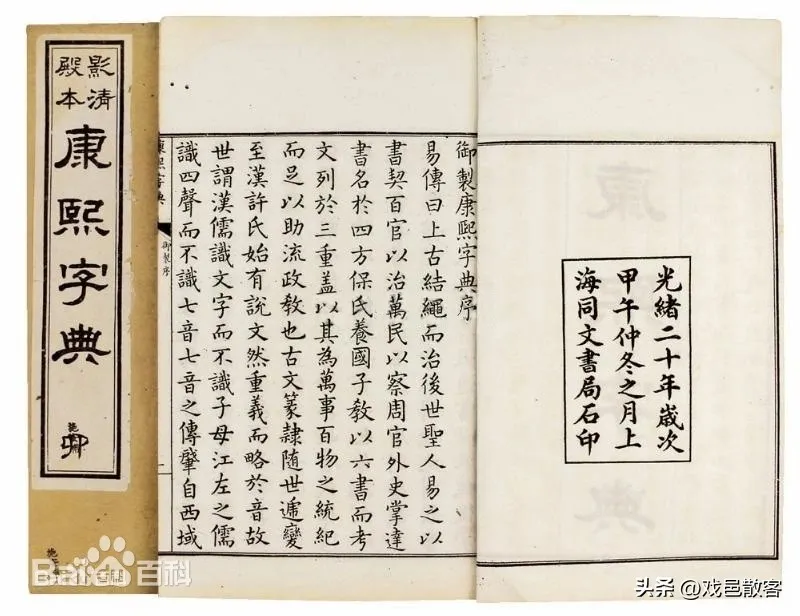 影清
殿本
康熙字典
御製康熙字典序
易傳曰上古結繩而治後世聖人易之以
書契百官以治萬民以察周官外史掌達
書名於四方保氏養國子教以六書而考
文列於三重盖以其為萬事百物之統紀
而足以助流政教也古文篆隸隨世遞變
至漢許氏始有說文然重義而略於音故
世謂漢儒識文字而不識子母江左之儒
識四聲而不識七音七音之傳肇自西域
康熙字典
御製序
一
光緒二十年歲次
甲午仲冬之月上
海同文書局石印
Baidu百科
头条 @戏邑散客